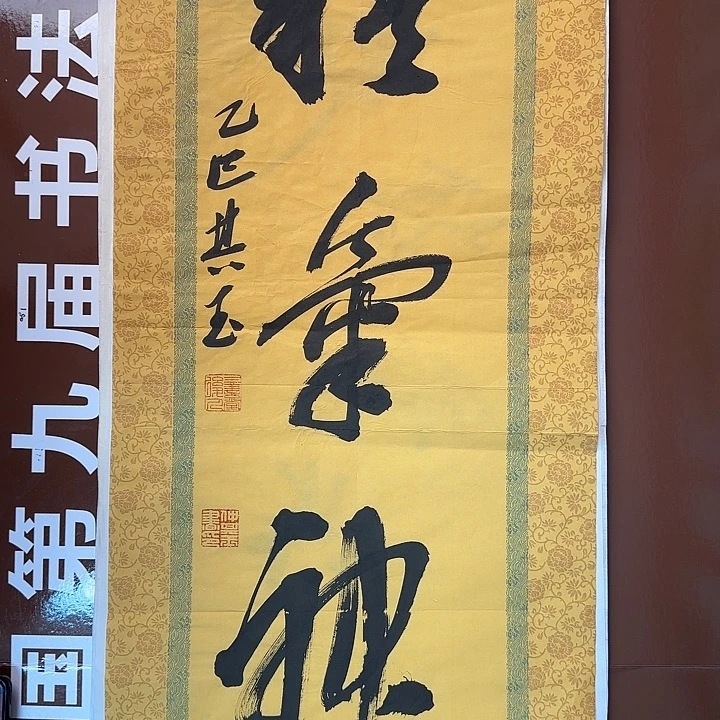 氣神
乙巳其玉
国第九届书法